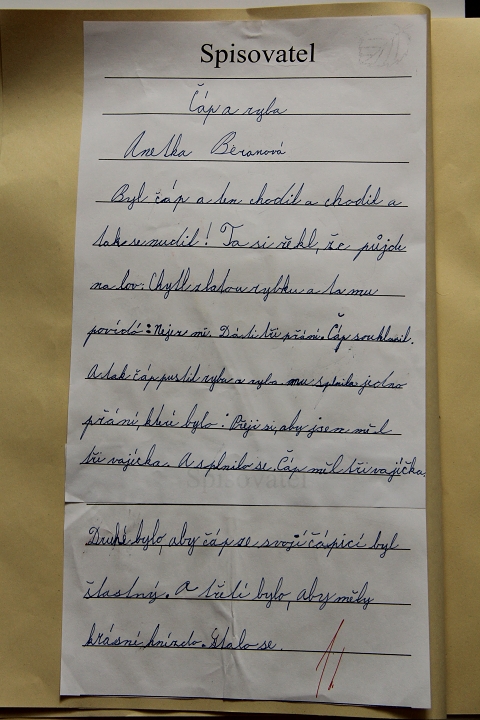 Spisovatel
Čáp a ryba
Anetka Beranová
Byl čáp a ten chodil a chodil a
tak se nudil! Ta si řekl, že půjde
na lov. Chytl zlatou rybku a ta mu
povídá: Nejez mě. Dám ti tři přání. Čáp souhlasil.
A tak čáp pustil rybu a ryba mu splnila jedno
přání, které bylo: Přeji si, aby jsem měl
tři vajíčka. A splnilo se. Čáp měl tři vajíčka.
Druhé bylo, aby čáp ze svojí čápicí byl
šťastný. A třetí bylo, aby měly
krásné hnízdo. Stalo se.